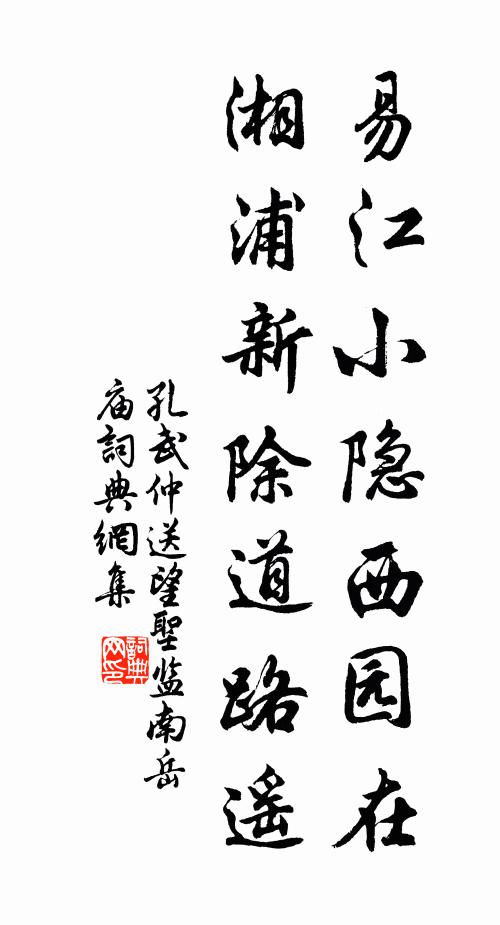 易江小隐西园在
湘浦新除道路遥
孔武仲送望聖监南岳
庙詞典網集
詞典网印